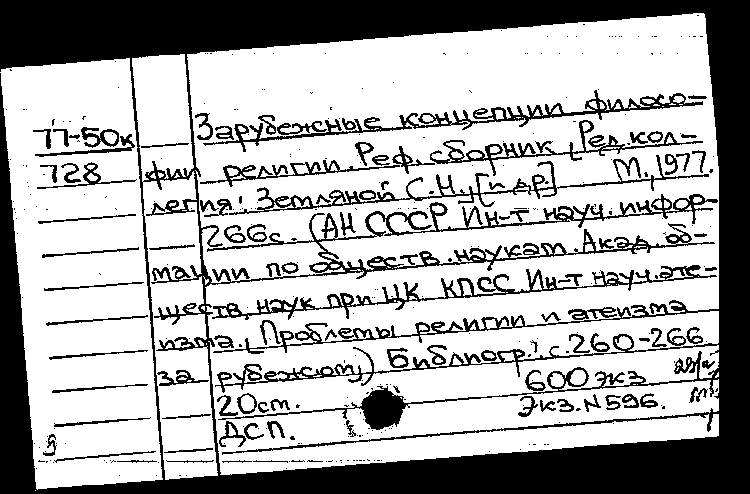 77-50к Зарубежные концепции филосо-
728 фии религии. Реф. сборник. [Ред. кол-
легия: Земляной С.Н., [и др]. М., 1977.
266с. (АН СССР. Ин-т науч. инфор-
мации по обществ. наукам. Акад. об-
ществ. наук при ЦК КПСС. Ин-т науч. ате-
изма. (Проблемы религии и атеизма
за рубежом)) Библиогр.: с. 260-266
600 экз
20см. Экз. N 596.
ДСП.